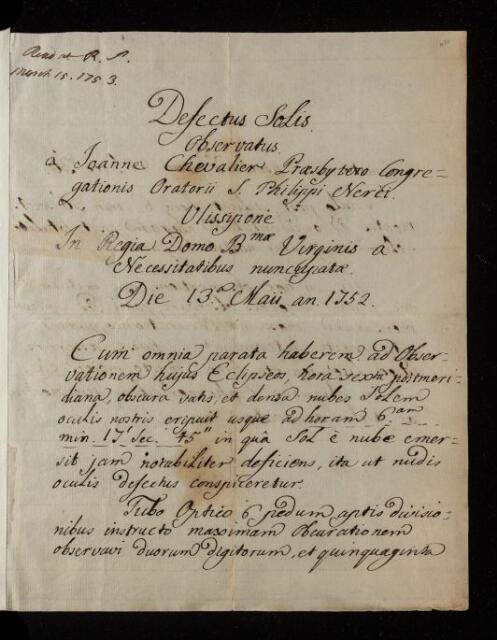 Read at R. S.
March 15. 1753.
Defectus Solis
Observatus
à Joanne Chevalier Præsbytero Congre-
gationis Oratorii S. Philippi Nerei.
Ulissipone
In Regia Domo B.mæ Virginis à
Necessitatibus nuncupatæ
Die 13.a Maii an. 1752.
Cum omnia parata haberem ad Obser-
vationem hujus Eclipseos, hora sexta postmeri-
diana, obscura satis, et densa nubes Solem
oculis nostris eripuit usque ad horam 6.am
min. 17 Sec. 45" in qua Sol è nube emer-
sit jam notabiliter deficiens, ita ut nudis
oculis defectus conspiceretur.
Tubo Optico 6 pedum aptis divisio-
nibus instructo maximam Obcurationem
observavi duorum digitorum, et quinquaginta